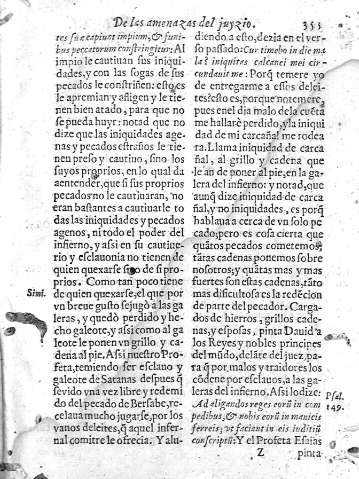 De las amenazas del juyzio. 353
tes suæ capiunt impium, & funi-
bus peccatorum constringitur: Al
impio le cautiuan sus iniqui-
dades, y con las sogas de sus
pecados le constriñen: esto es
le apremian y afligen y le tie-
nen bien atado, para que no
se pueda huyr: notad que no
dize que las iniquidades age-
nas y pecados estraños le tie-
nen preso y cautiuo, sino los
suyos proprios, en lo qual da
a entender, que si sus proprios
pecados no le cautiuaran, no
eran bastantes a cautiuarle to
das las iniquidades y pecados
agenos, ni todo el poder del
infierno, y assi en su cautiue-
rio y esclauonia no tienen de
quien quexarse sino de si pro-
prios. Como tan poco tiene
Simi. de quien quexarse, el que por
vn breue gusto se jugò a las ga
leras, y quedò perdido y he-
cho galeote, y assi como al ga
leote le ponen vn grillo y ca-
dena al pie. Assi nuestro Profe-
ta, temiendo ser esclauo y
galeote de Satanas despues q̃
se vido vna vez libre y redemi
do del pecado de Bersabe, re-
celaua mucho jugarse, por los
vanos deleites, q̃ aquel infer-
nal comitre le ofrecia. Y alu-
diendo a esto, dezia en el ver-
so passado: Cur timebo in die ma
la? iniquitas calcanei mei cir-
cundauit me: Porq̃ temere yo
de entregarme a essos delei-
tes? esto es, porque no temere,
pues en el dia malo de la cuẽta
me hallarè perdido, y la iniqui
dad de mi carcañal me rodea
ra. Llama iniquidad de carca
ñal, al grillo y cadena que
le an de poner al pie, en la ga-
lera del infierno: y notad, que
aunq̃ dize iniquidad de carca
ñal, y no iniquidades, es porq̃
hablaua a cerca de vn solo pe
cado; pero es cosa cierta que
quãtos pecados cometemos,
tãtas cadenas ponemos sobre
nosotros; y quãtas mas y mas
fuertes son estas cadenas, tãto
mas dificultosa es la redẽcion
de parte del pecador. Carga-
dos de hierros, grillos cade-
nas, y esposas, pinta Dauid a
los Reyes y nobles principes
del mũdo, delãte del juez, pa-
ra q̃ por malos y traidores los
cõdene por esclauos, a las ga-
leras del infierno. Assi lo dize:
Psal. 149. Ad aligandos reges eorũ in com
pedibus, & nobiles eorũ in manicis
ferreis, vt faciant in eis iuditiũ
conscriptũ: Y el Profeta Esaias
Z pinta